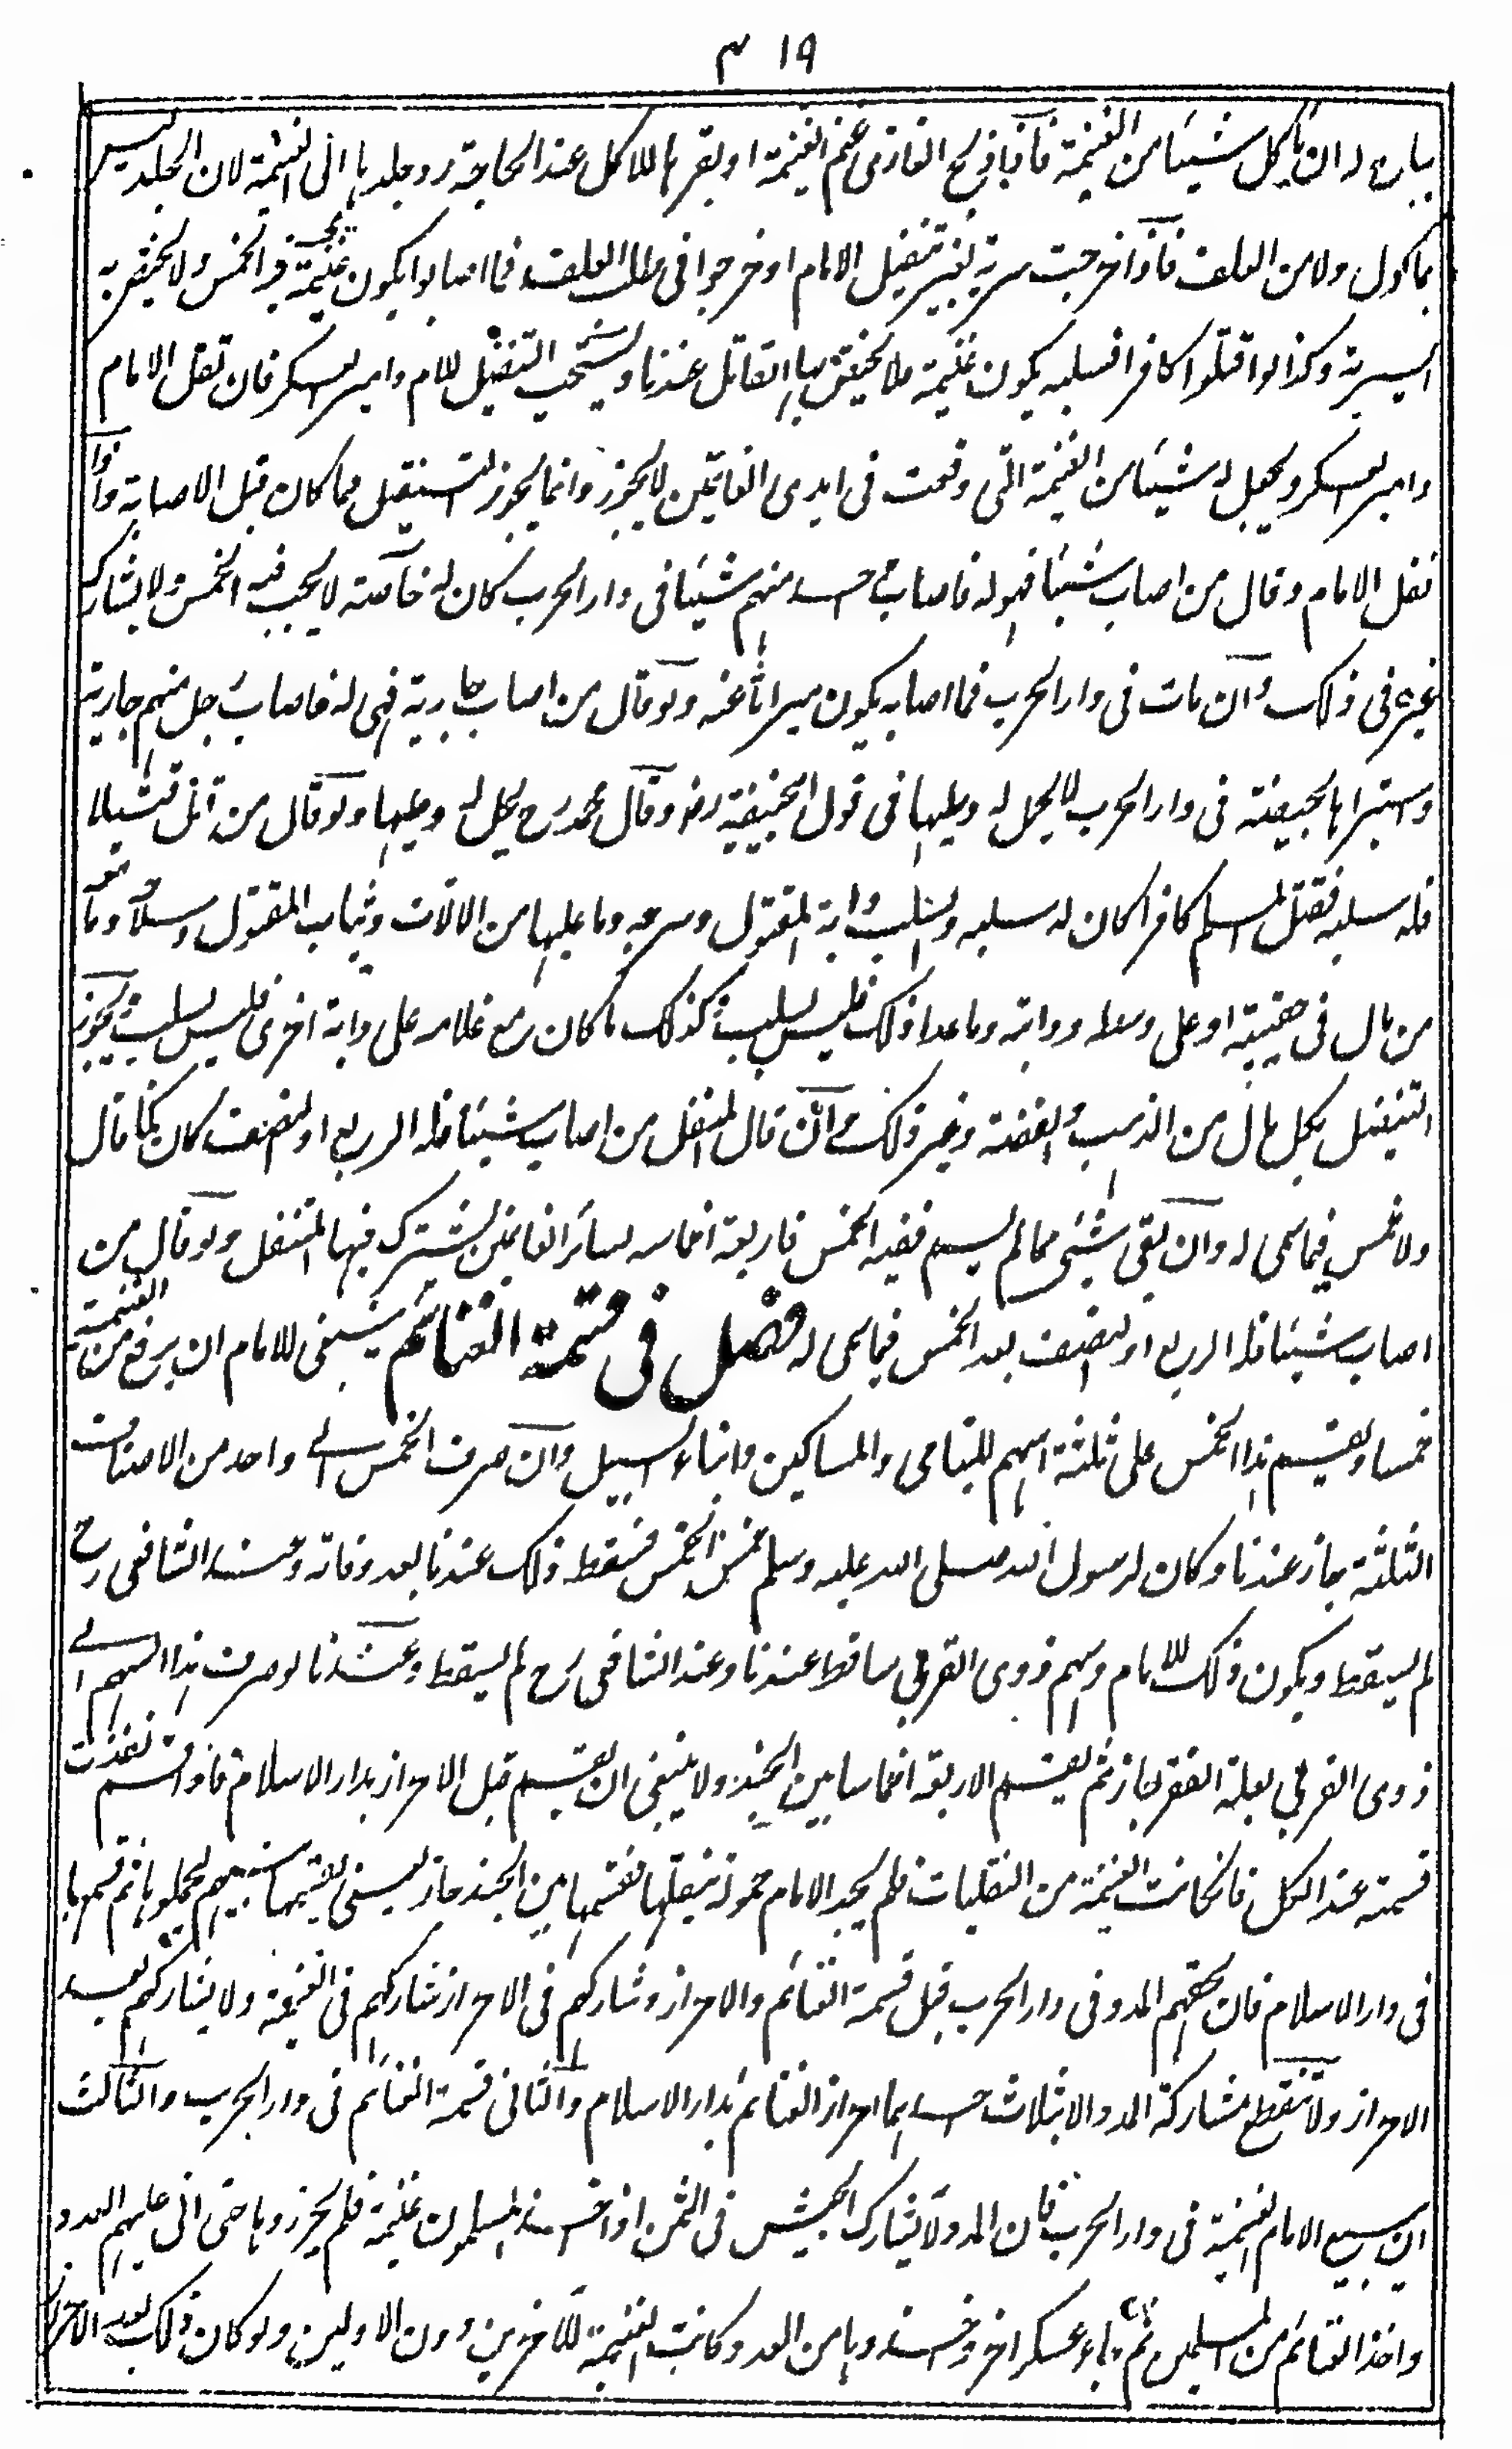 ٣١٩
يباح له ان ياكل شيئا من الغنيمة فاذا ذبح الغازى غنم الغنيمة او بقرها للاكل عند الحاجة رد جلدها الى الغنيمة لان الجلد ليس
بماكول ولا من العلف فاذا خرجت سرية بغير تنفيل الامام او خرجوا فى طلب العلف فما اصابوا يكون غنيمة فيه الخمس ولا يختص به
السرية وكذا لو اقتلوا كافرا فسلبه يكون غنيمة فلا يختص بها القاتل عندنا ويستحب التنفيل للامام وامير العسكر فان نفل الامام
وامير العسكر ويجعل له شيئا من الغنيمة التى وقعت فى ايدى الغانمين لا يجوز وانما يجوز التنفيل مما كان قبل الاصابة واذا
نفل الامام وقال من اصاب شيئا فهو له فاصاب احد منهم شيئا فى دار الحرب كان له خاصة لا يجب فيه الخمس ولا يشارك
غيره فى ذلك وان مات فى دار الحرب فما اصابه يكون ميراثا عنه ولو قال من اصاب جارية فهى له فاصاب رجل منهم جارية
واستبراها بحيضة فى دار الحرب لا يحل له وطيها فى قول ابيحنيفة رض وقال محمد رح يحل له وطيها ولو قال من قتل قتيلا
فله سلبه فقتل المسلم كافرا كان له سلبه والسلب دابة المقتول وسرجه وما عليها من الالات وثياب المقتول وسلاحه وما معه
من مال فى حقيبته او على وسطه ودابته وما عدا ذلك فليس بسلب كذلك ما كان مع غلامه على دابة اخرى فليس بسلب ويجوز
التنفيل بكل مال من الذهب والفضة وغير ذلك وان قال المنفل من اصاب شيئا فله الربع او النصف كان كما قال
ولا خمس فيما سمى له وان بقى شيئ مما لم يسم ففيه الخمس فاربعة اخماسه لسائر الغانمين يشترك فيها المتنفل ولو قال من
اصاب شيئا فله الربع او النصف بعد الخمس فيما سمى له فصل فى قسمة الغنائم ينبغى للامام ان يرفع من الغنيمة
خمسا ويقسم هذا الخمس على ثلثة اسهم لليتامى والمساكين وابناء السبيل وان صرف الخمس الى واحد من الاصناف
الثلثة جاز عندنا وكان لرسول الله صلى الله عليه وسلم خمس الخمس فسقط ذلك عندنا بعد وفاته وعند الشافعى رح
لم يسقط ويكون ذلك للامام وسهم ذوى القربى ساقط عندنا وعند الشافعى رح لم يسقط وعندنا لو صرف هذا السهم الى
ذوى القربى بعلة الفقر جاز ثم يقسم الاربعة اخماسا بين الجند ولا ينبغى ان يقسم قبل الاحراز بدار الاسلام فاذا قسم نفذت
قسمته عند الكل فان كانت الغنيمة من النقليات فلم يجد الامام حمولة ينقلها فقسمها بين الجند جاز يعنى يقسمها بينهم ليحملوها ثم قسمها
فى دار الاسلام فان لحقهم المدد فى دار الحرب قبل قسمة الغنائم والاحراز وشاركهم فى الاحراز شاركهم فى الغنيمة ولا يشاركهم بعد
الاحراز ولا تنقطع مشاركة المدد الا بثلاث احدها احراز الغنائم بدار الاسلام والثانى قسمة الغنائم فى دار الحرب والثالث
ان يبيع الامام الغنيمة فى دار الحرب فان المدد لا يشارك الجيش فى الثمن اذا اخذ المسلمون غنيمة فلم يحرزوها حتى اتى عليهم العدو
واخذ الغنائم من المسلمين ثم جاء عسكر اخر واخذوها من العدو كانت الغنيمة للاخرين دون الاولين ولو كان ذلك بعد الاحراز